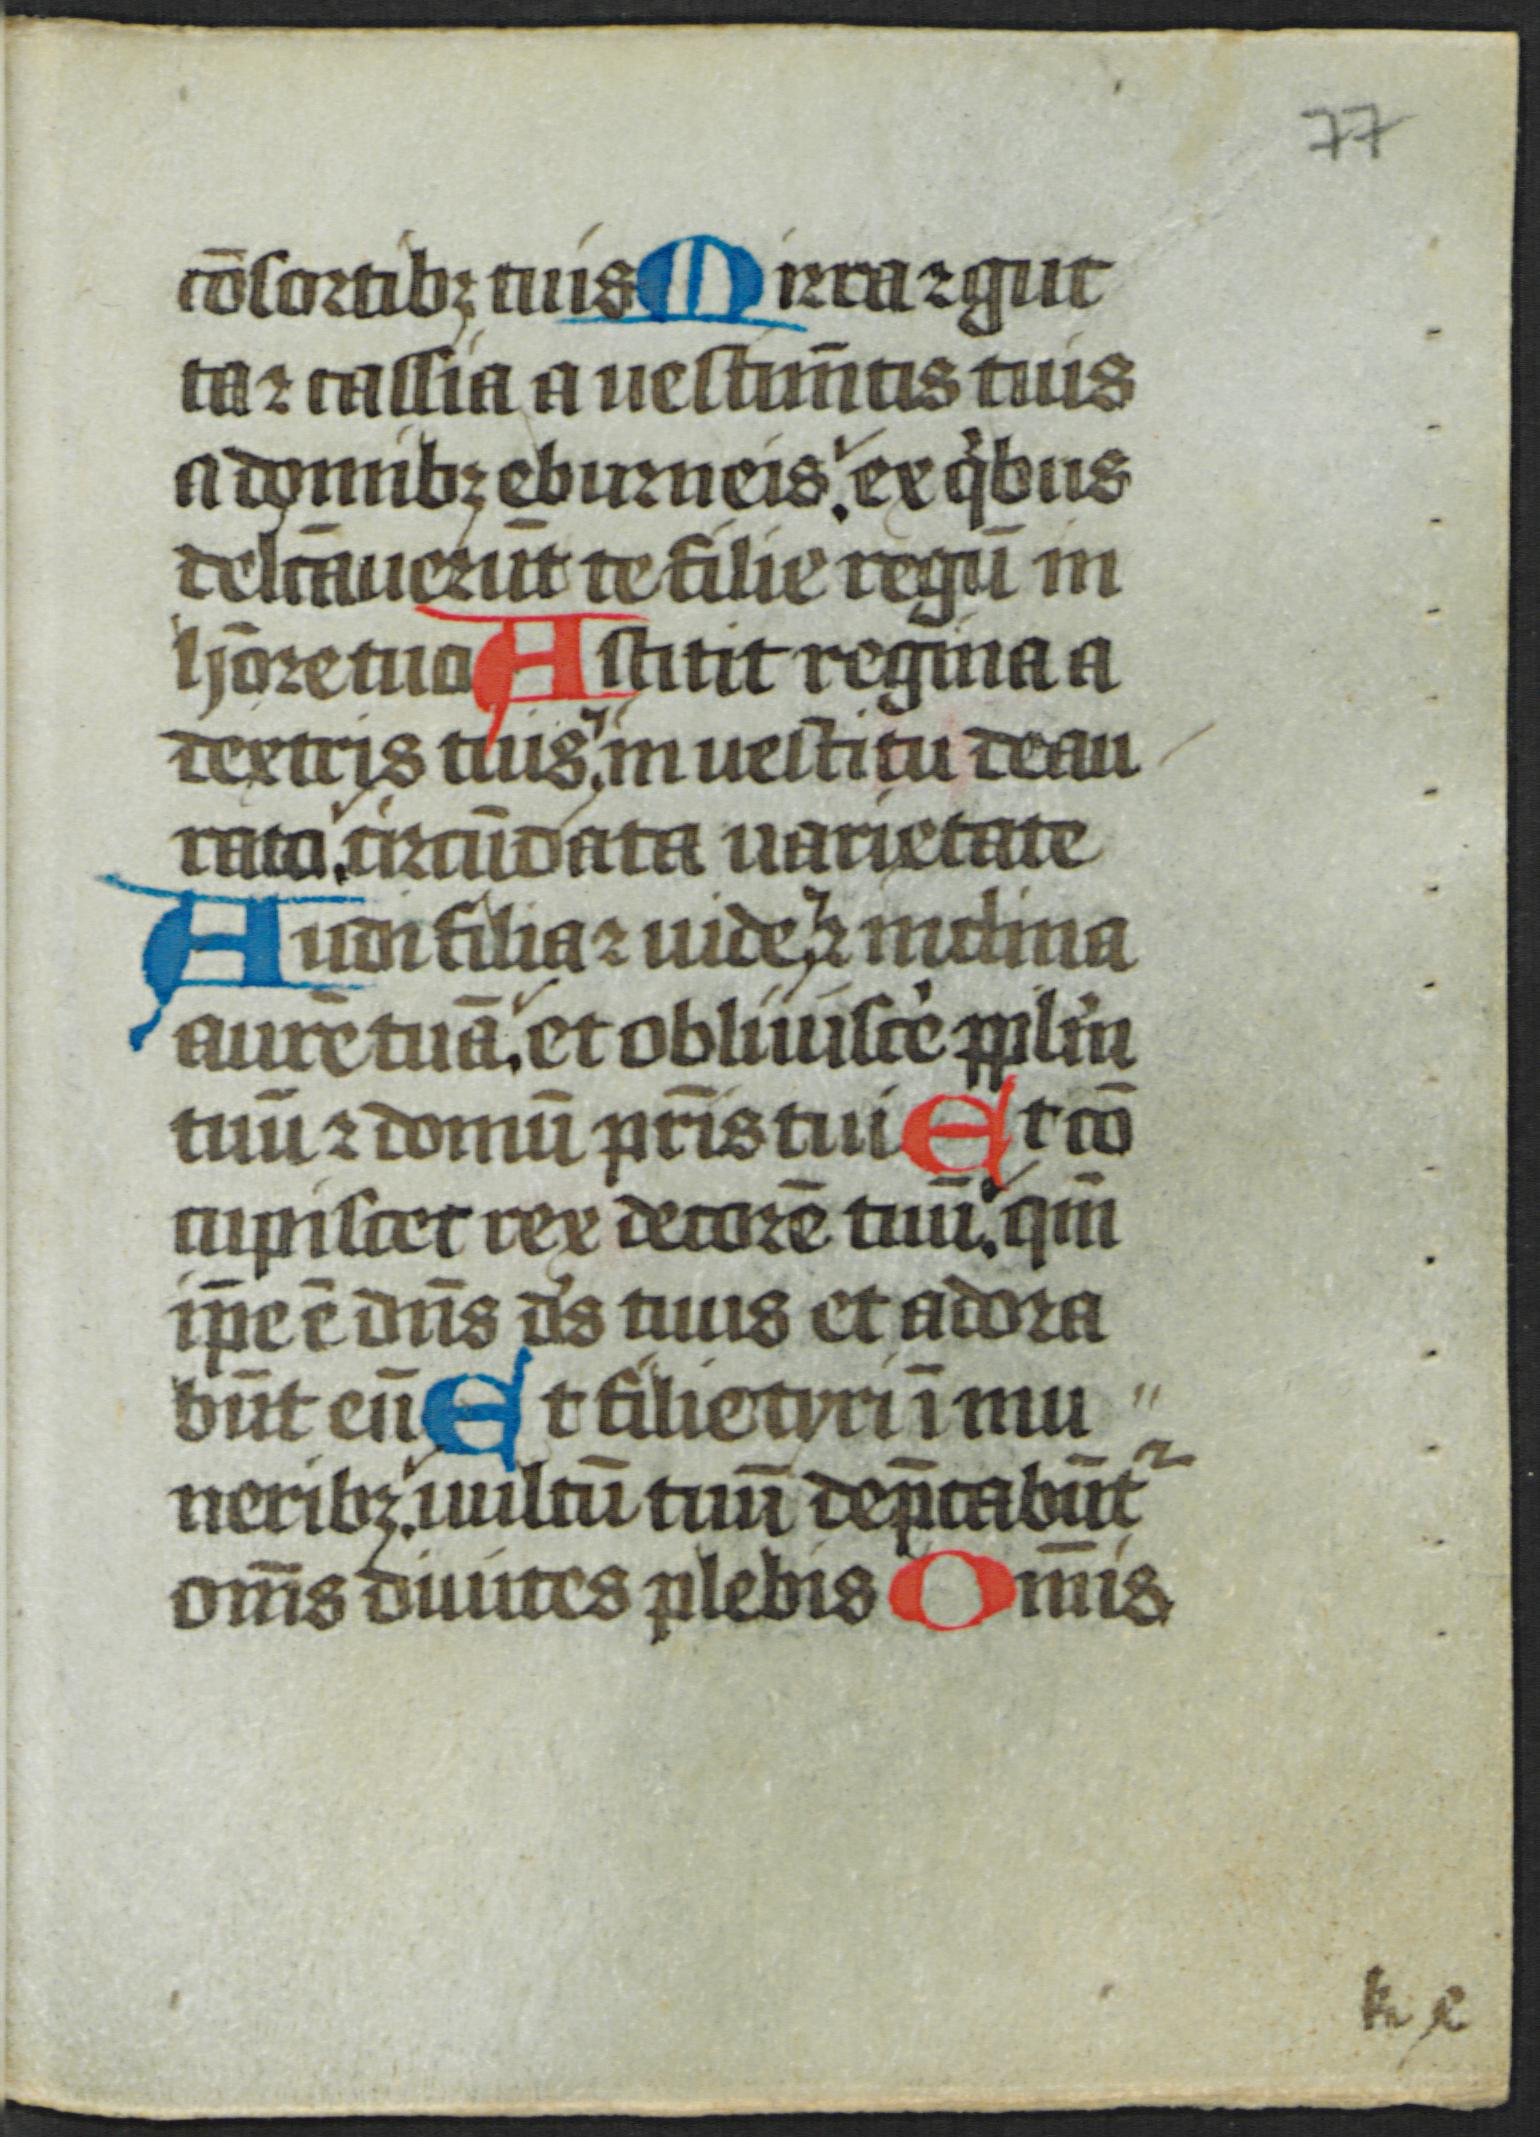 77
cōsortibꝫ tuis Mirra ⁊ gut
ta ⁊ cassia a uestim̄tis tuis
a domibꝫ eburneis. ex qͥbus
delc̄auerūt te filie regū in
hōre tuo Astitit regina a
dextris tuis. in uestitu deau
rato. circūdata uarietate
Audi filia ⁊ uide. ⁊ inclina
aurē tuā. et obliuisce ppl̓m
tuū ⁊ domū pr̄is tui Et cō
cupiscet rex decorē tuū. qm̄
ip̄e ē dn̄s ds̓ tuus et adora
būt eū Et filie tyri ī mu
neribꝫ. uultū tuū dep̄cabūt᷑
om̄s diuites plebis Om̄is
k e